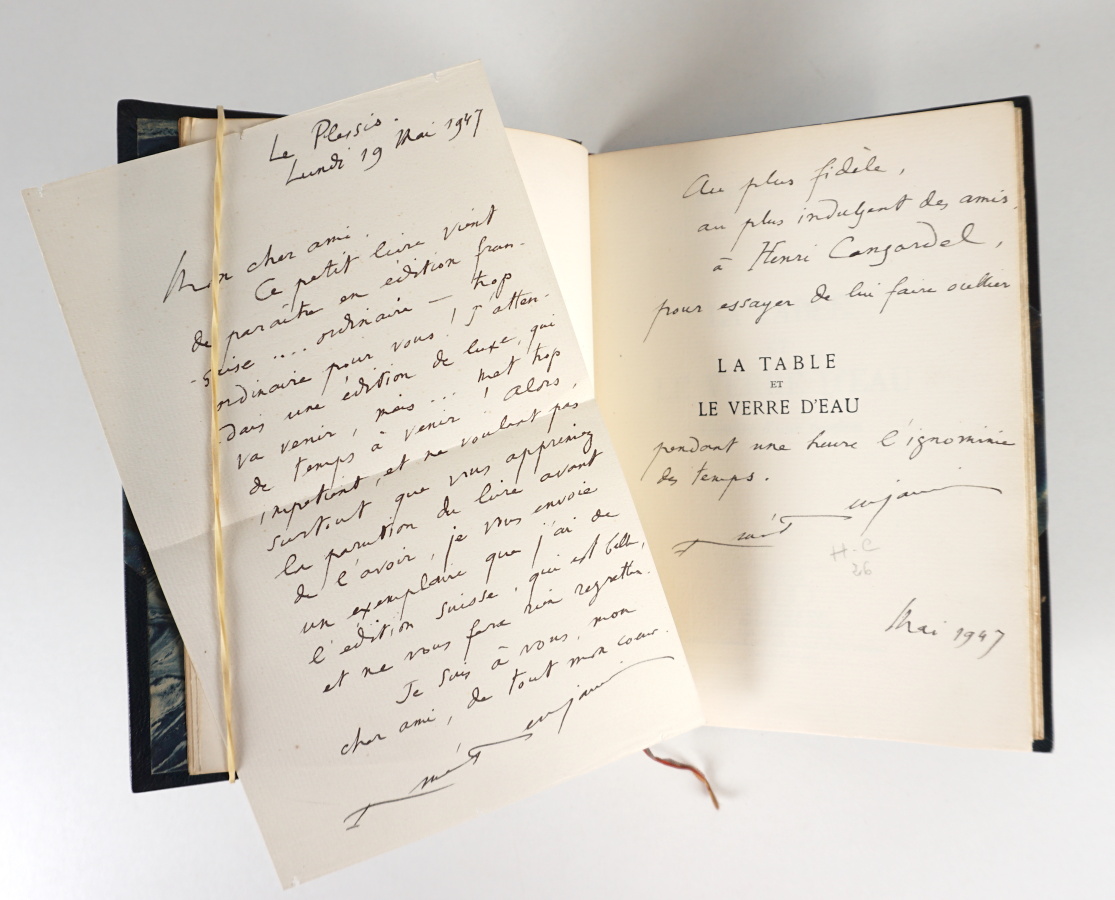 Le Plessis.
Lundi 19 Mai 1947
Mon cher ami.
Ce petit livre vient
de paraître en édition fran-
-çaise .... ordinaire — trop
ordinaire pour vous ! J'atten-
dais une édition de luxe, qui
va venir, mais ... met trop
de temps à venir ! Alors,
impatient, et ne voulant pas
surtout que vous appreniez
la parution du livre avant
de l'avoir, je vous envoie
un exemplaire que j'ai de
l'édition suisse, qui est belle,
et ne vous fera rien regretter.
Je suis à vous, mon
cher ami, de tout mon coeur.
Au plus fidèle,
au plus indulgent des amis,
à Henri Cangardel,
pour essayer de lui faire oublier
LA TABLE
ET
LE VERRE D'EAU
pendant une heure l'ignominie
des temps.
H.C
26
Mai 1947